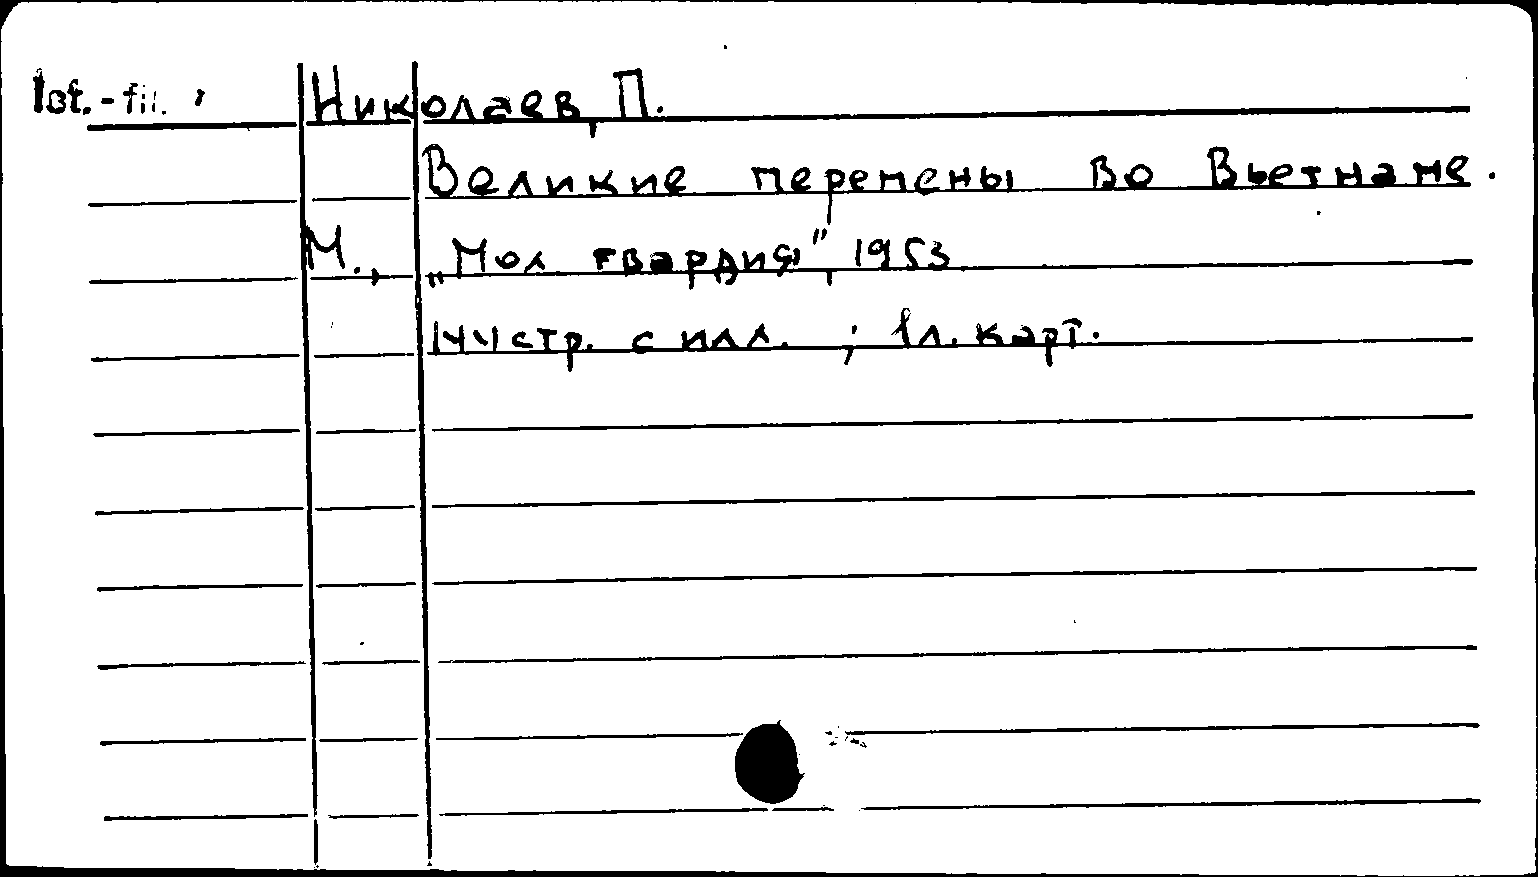 Ist.-fil.
Николаев, П.
Великие перемены во Вьетнаме.
М., „Мол гвардия", 1953
144 стр. с илл. ; 1 л. карт.